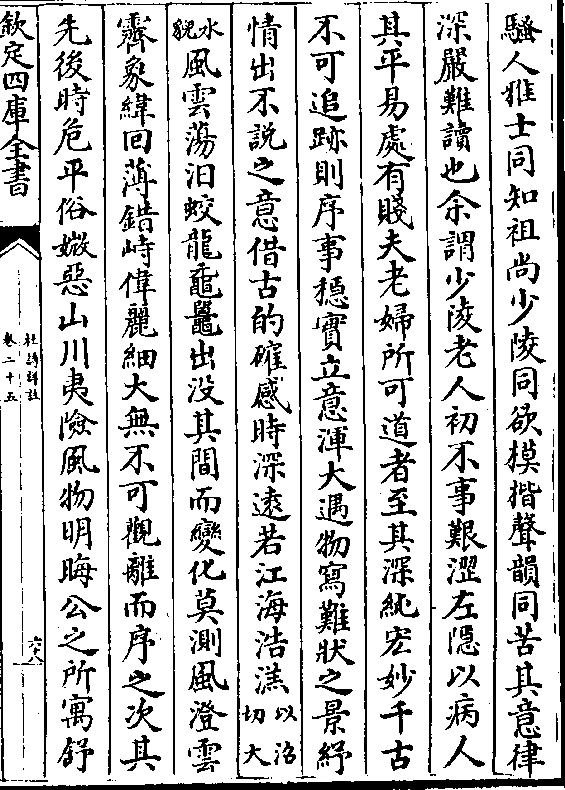 騷人雅士同知祖尚少陵同欲模揩聲韻同苦其意律
深嚴難讀也余謂少陵老人初不事艱澀左隱以病人
其平易處有賤夫老婦所可道者至其深純宏妙千古
不可追跡則序事穩實立意渾大遇物寫難狀之景紓
情出不說之意借古的確感時深遠若江海浩溔以沼切大
水貌風雲蕩汨蛟龍黿鼉出没其間而變化莫測風澄雲
霽象緯回薄錯峙偉麗細大無不可觀離而序之次其
先後時危平俗媺惡山川夷險風物明晦公之所寓舒
欽定四庫全書
杜詩詳註
卷二十五
六十八